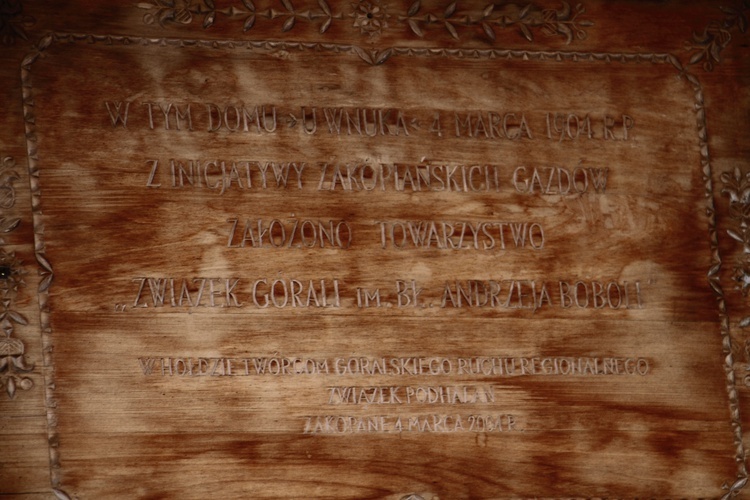 W TYM DOMU >U WNUKA< 4 MARCA 1904 R.P.
Z INICJATYWY ZAKOPIAŃSKICH GAZDÓW
ZAŁOŻONO TOWARZYSTWO
„ZWIĄZEK GÓRALI IM. BŁ. ANDRZEJA BOBOLI”
W HOŁDZIE TWÓRCOM GÓRALSKIEGO RUCHU REGIONALNEGO
ZWIĄZEK PODHALAN
ZAKOPANE 4 MARCA R.P.